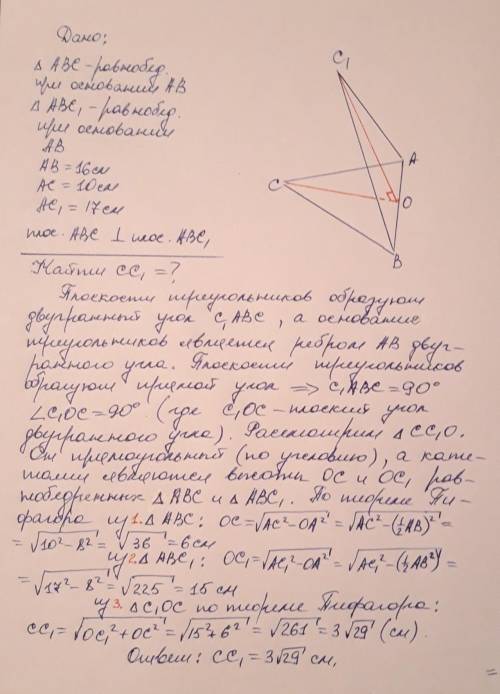 Дано:
Δ ABC - равнобед.
при основании AB
Δ ABC₁ - равнобед.
при основании
AB
AB = 16 см
AC = 10 см
AC₁ = 17 см
плос. ABC ⊥ плос. ABC₁
Найти CC₁ = ?
C₁
A
C
O
B
Плоскости треугольников образуют
двугранный угол C₁ABC, а основание
треугольников является ребром AB двуг-
ранного угла. Плоскости треугольников
образуют прямой угол ⇒ C₁ABC = 90°
∠C₁OC = 90° (где C₁OC - плоский угол
двугранного угла). Рассмотрим Δ CC₁O.
Он прямоугольный (по условию), а кате-
тами являются высоты OC и OC₁ рав-
нобедренных Δ ABC и Δ ABC₁. По теореме Пи-
фагора из 1. Δ ABC: OC = √AC² - OA² = √AC² - (½AB)² =
= √10² - 8² = √36 = 6 см
из 2. Δ ABC₁: OC₁ = √AC₁² - OA² = √AC₁² - (½AB²) =
= √17² - 8² = √225 = 15 см
из 3. Δ C₁OC по теореме Пифагора:
CC₁ = √OC₁² + OC² = √15² + 6² = √261 = 3√29 (см).
Ответ: CC₁ = 3√29 см.